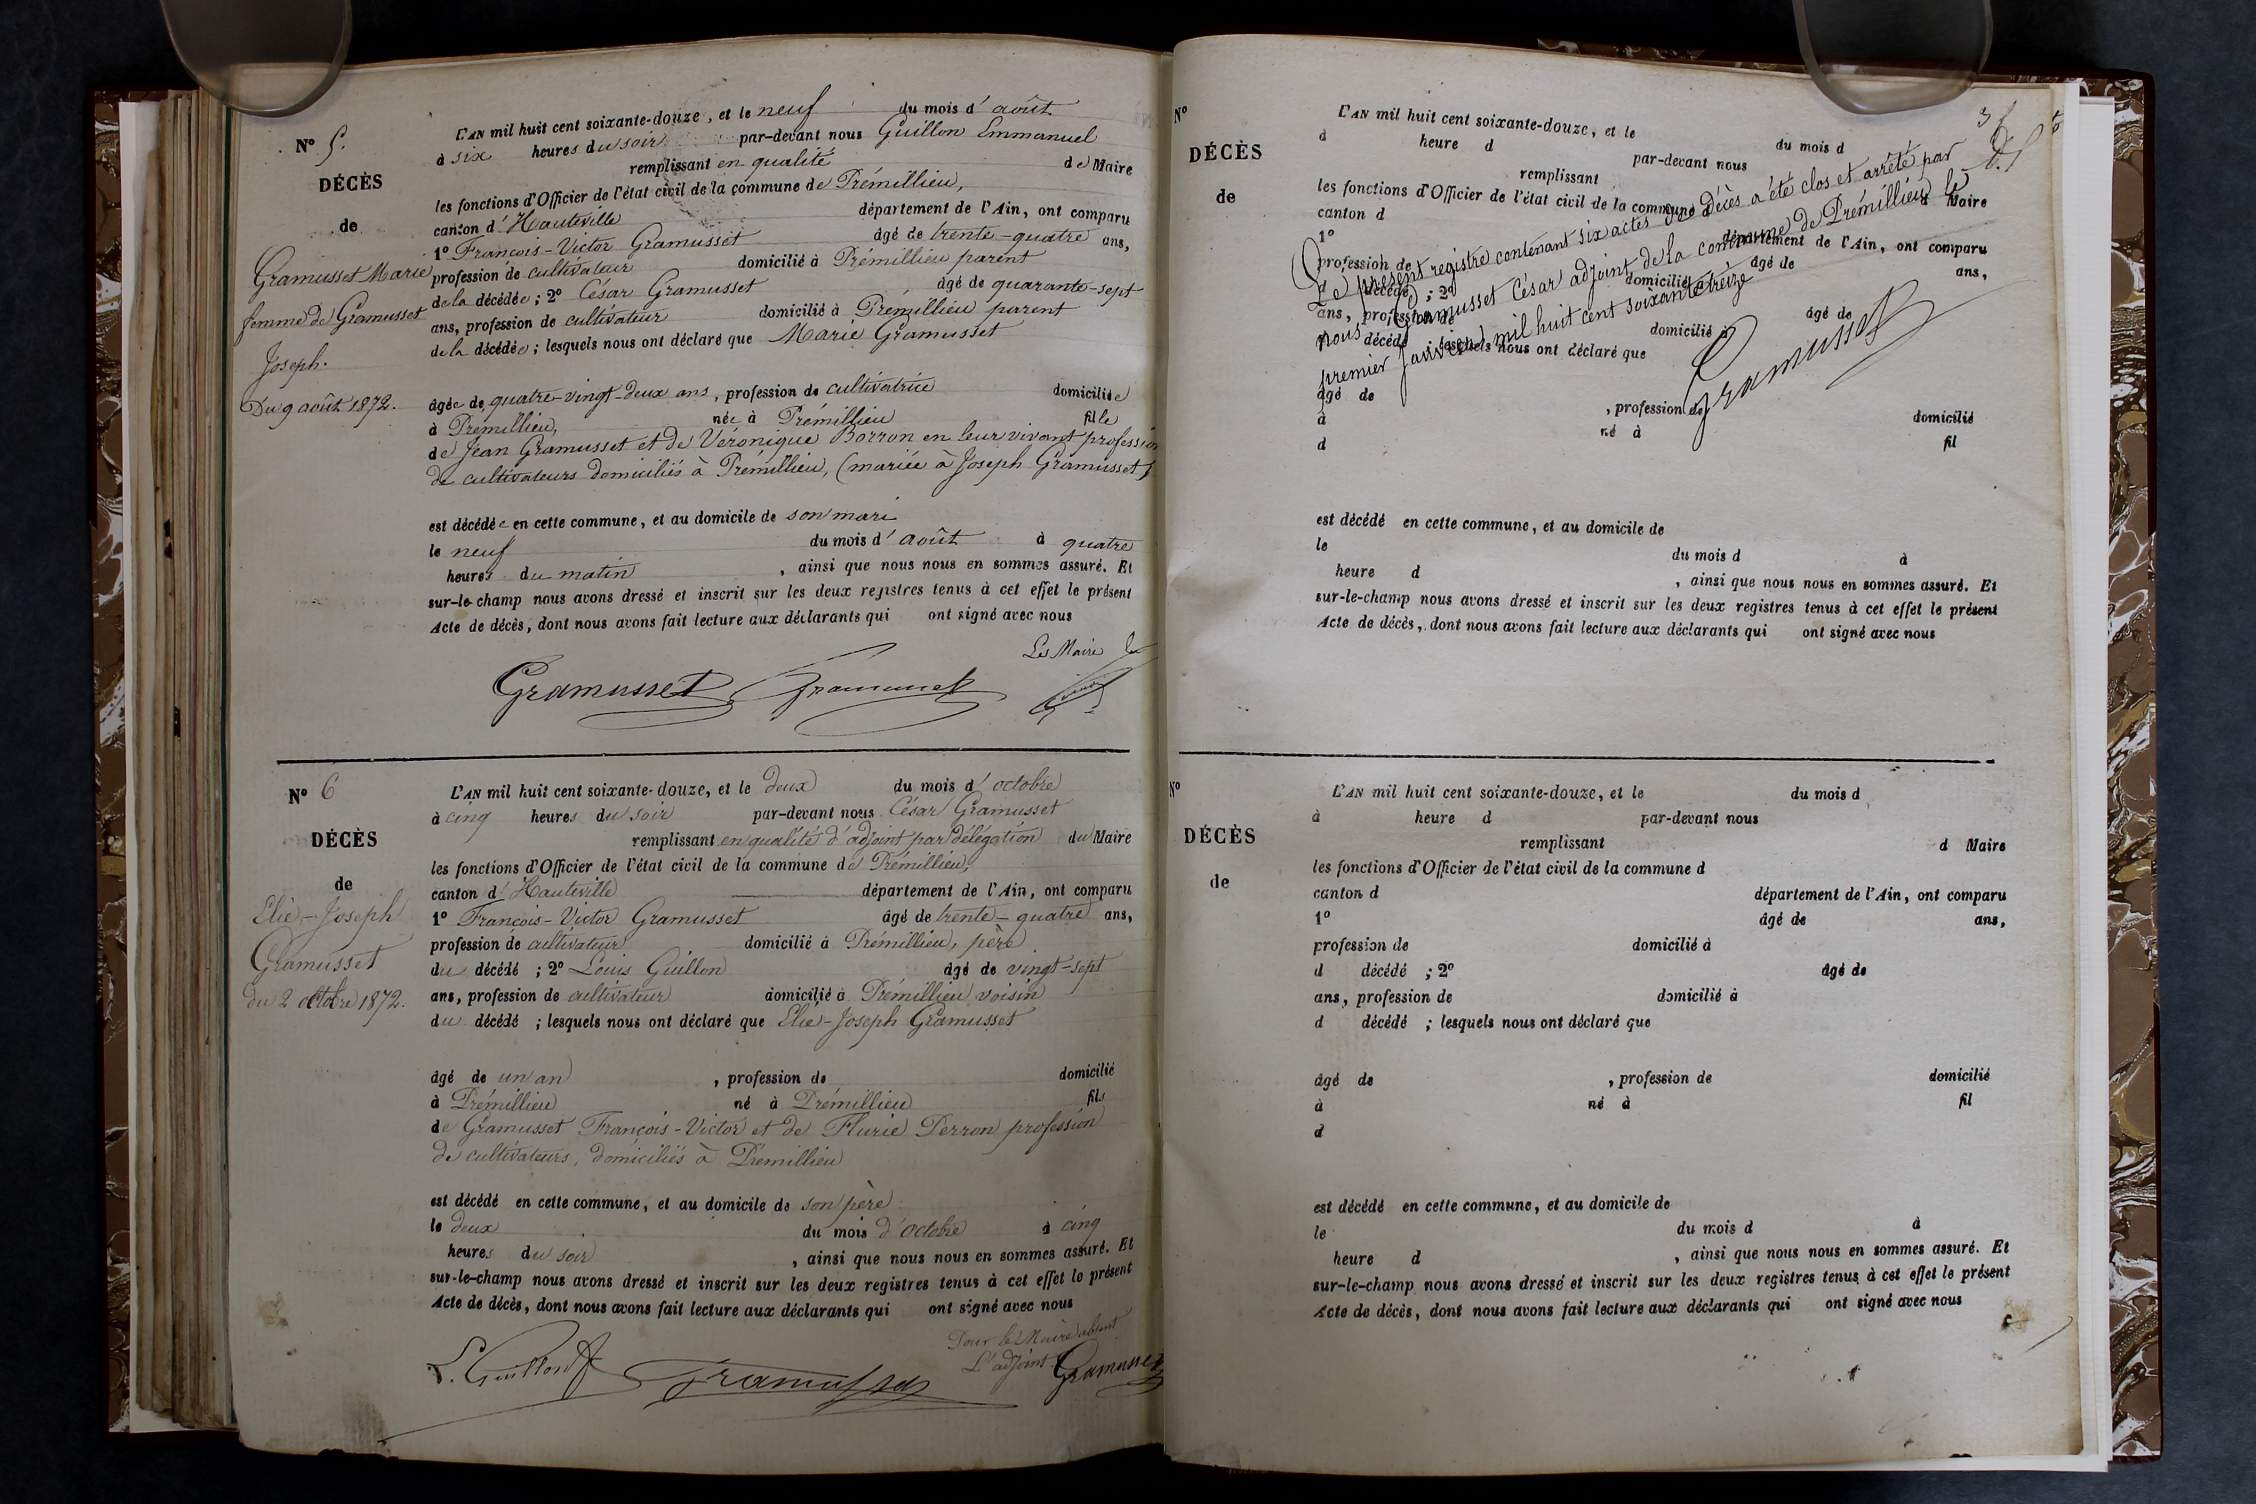 N° 5.
DÉCÈS
de
Gramusset Marie
femme de Gramusset
Joseph.
Du 9 août 1872.
L'AN mil huit cent soixante-douze, et le neuf du mois d'août
à six heures du soir par-devant nous Guillon Emmanuel
remplissant en qualité de Maire
les fonctions d'Officier de l'état civil de la commune de Prémillieu,
canton d'Hauteville département de l'Ain, ont comparu
1° François-Victor Gramusset âgé de trente-quatre ans,
profession de cultivateur domicilié à Prémillieu parent
de la décédée ; 2° César Gramusset âgé de quarante-sept
ans, profession de cultivateur domicilié à Prémillieu parent
de la décédée ; lesquels nous ont déclaré que Marie Gramusset
âgée de quatre-vingt-deux ans, profession de cultivatrice domiciliée
à Prémillieu, née à Prémillieu fille
de Jean Gramusset et de Véronique Borron en leur vivant profession
de cultivateurs domiciliés à Prémillieu, (mariée à Joseph Gramusset)
est décédée en cette commune, et au domicile de son mari
le neuf du mois d'août à quatre
heures du matin, ainsi que nous nous en sommes assuré. Et
sur-le-champ nous avons dressé et inscrit sur les deux registres tenus à cet effet le présent
Acte de décès, dont nous avons fait lecture aux déclarants qui ont signé avec nous
Le Maire
Gramusset Gramusset
N° 6
DÉCÈS
de
Elie-Joseph
Gramusset
du 2 octobre 1872.
L'AN mil huit cent soixante-douze, et le deux du mois d'octobre
à cinq heures du soir par-devant nous César Gramusset
remplissant en qualité d'adjoint par délégation du Maire
les fonctions d'Officier de l'état civil de la commune de Prémillieu,
canton d'Hauteville département de l'Ain, ont comparu
1° François-Victor Gramusset âgé de trente-quatre ans,
profession de cultivateur domicilié à Prémillieu, père
du décédé ; 2° Louis Guillon âgé de vingt-sept
ans, profession de cultivateur domicilié à Prémillieu voisin
du décédé ; lesquels nous ont déclaré que Elie-Joseph Gramusset
âgé de un an, profession de domicilié
à Prémillieu né à Prémillieu fils
de Gramusset François-Victor et de Flurie Perron profession
de cultivateurs, domiciliés à Prémillieu
est décédé en cette commune, et au domicile de son père
le deux du mois d'octobre à cinq
heures du soir, ainsi que nous nous en sommes assuré. Et
sur-le-champ nous avons dressé et inscrit sur les deux registres tenus à cet effet le présent
Acte de décès, dont nous avons fait lecture aux déclarants qui ont signé avec nous
Pour le Maire absent
L'adjoint Gramusset
L. Guillon Gramusset
N°
DÉCÈS
de
L'AN mil huit cent soixante-douze, et le du mois d
à heure d par-devant nous
remplissant d Maire
les fonctions d'Officier de l'état civil de la commune d
canton d département de l'Ain, ont comparu
1° âgé de ans,
profession de domicilié à
d décédé ; 2° âgé de
ans, profession de domicilié à
d décédé ; lesquels nous ont déclaré que
Le présent registre contenant six actes de décès a été clos et arrêté par
nous Gramusset César adjoint de la commune de Prémillieu le
premier Janvier mil huit cent soixante treize
Gramusset
âgé de , profession de domicilié
à né à fil
d
est décédé en cette commune, et au domicile de
le du mois d à
heure d , ainsi que nous nous en sommes assuré. Et
sur-le-champ nous avons dressé et inscrit sur les deux registres tenus à cet effet le présent
Acte de décès, dont nous avons fait lecture aux déclarants qui ont signé avec nous
N°
DÉCÈS
de
L'AN mil huit cent soixante-douze, et le du mois d
à heure d par-devant nous
remplissant d Maire
les fonctions d'Officier de l'état civil de la commune d
canton d département de l'Ain, ont comparu
1° âgé de ans,
profession de domicilié à
d décédé ; 2° âgé de
ans, profession de domicilié à
d décédé ; lesquels nous ont déclaré que
âgé de , profession de domicilié
à né à fil
d
est décédé en cette commune, et au domicile de
le du mois d à
heure d , ainsi que nous nous en sommes assuré. Et
sur-le-champ nous avons dressé et inscrit sur les deux registres tenus à cet effet le présent
Acte de décès, dont nous avons fait lecture aux déclarants qui ont signé avec nous